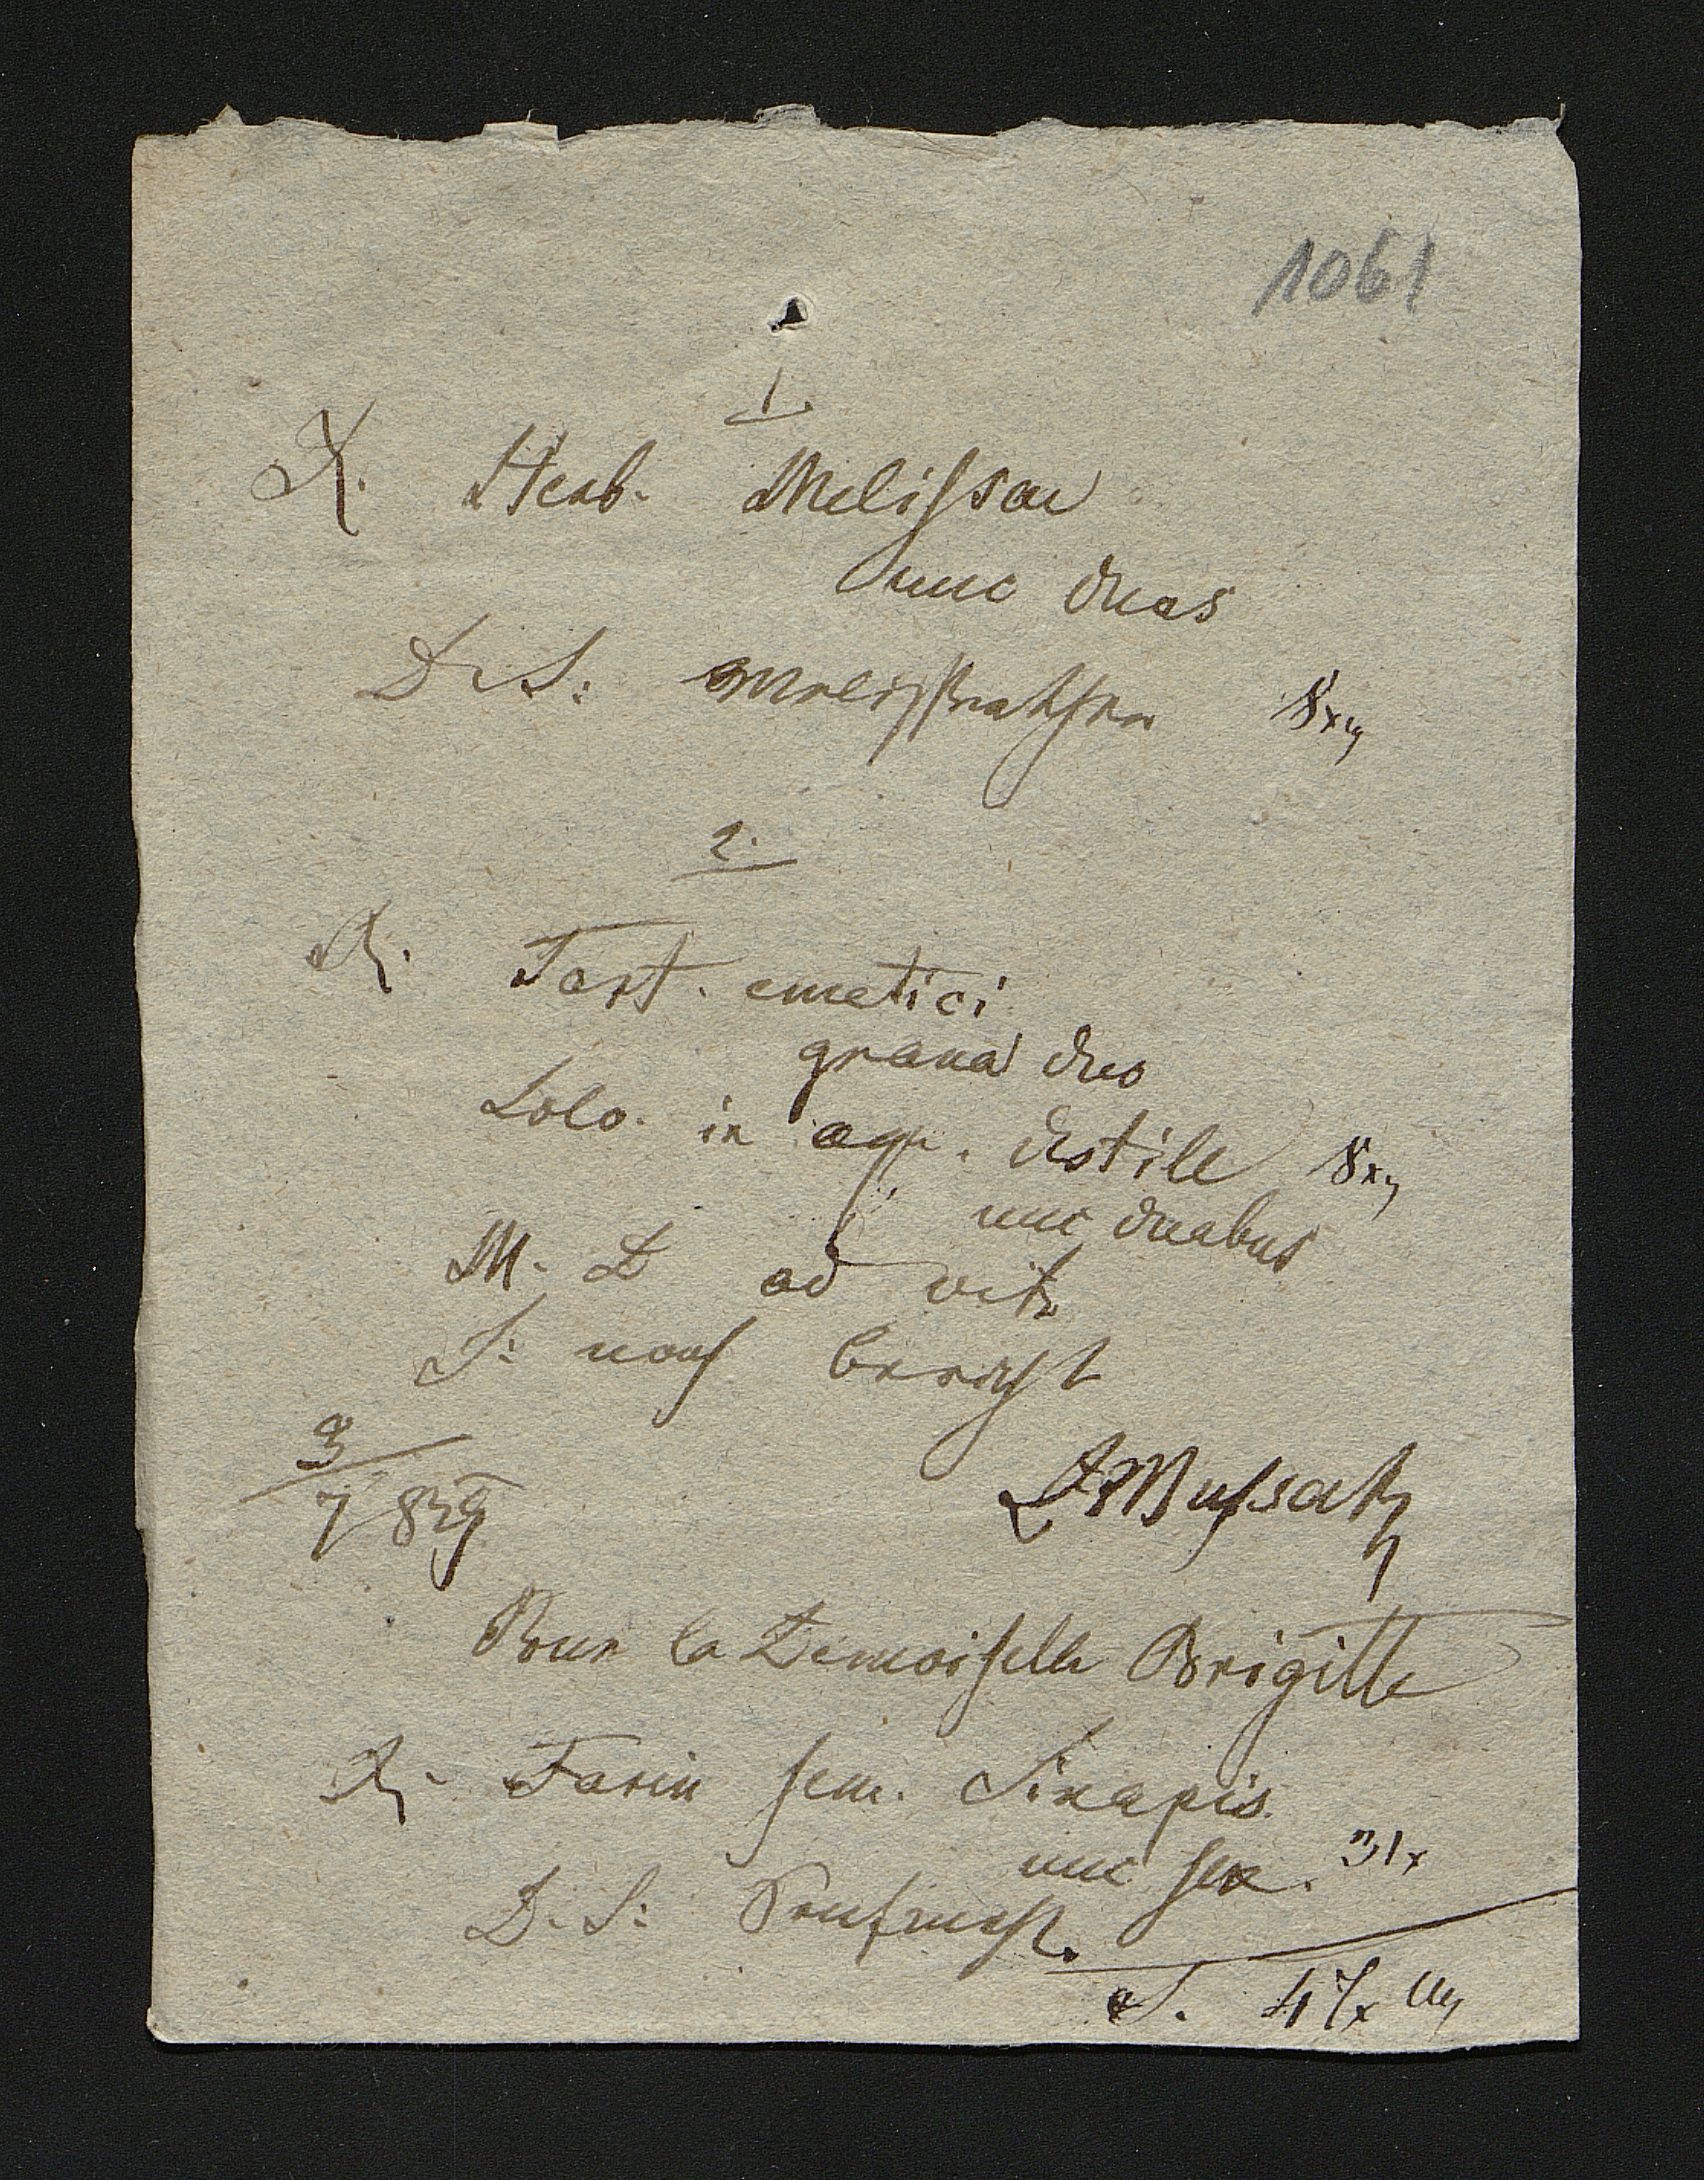 1061
1.
Rx. Herb. Melissae
unc duas
D. S: Melissenthee 8 x
2.
Rx. Tart. emetici
grana duo
Solv. in aqu. destill 8 x
unc duabus
M. D ad vitr
S: nach Bericht
3/7 839
Pour la Demoiselle Brigitte
Rx. Farin sem. Sinapis
unc sex. 31 x
D. S: Senfmehl.
S. 47 x